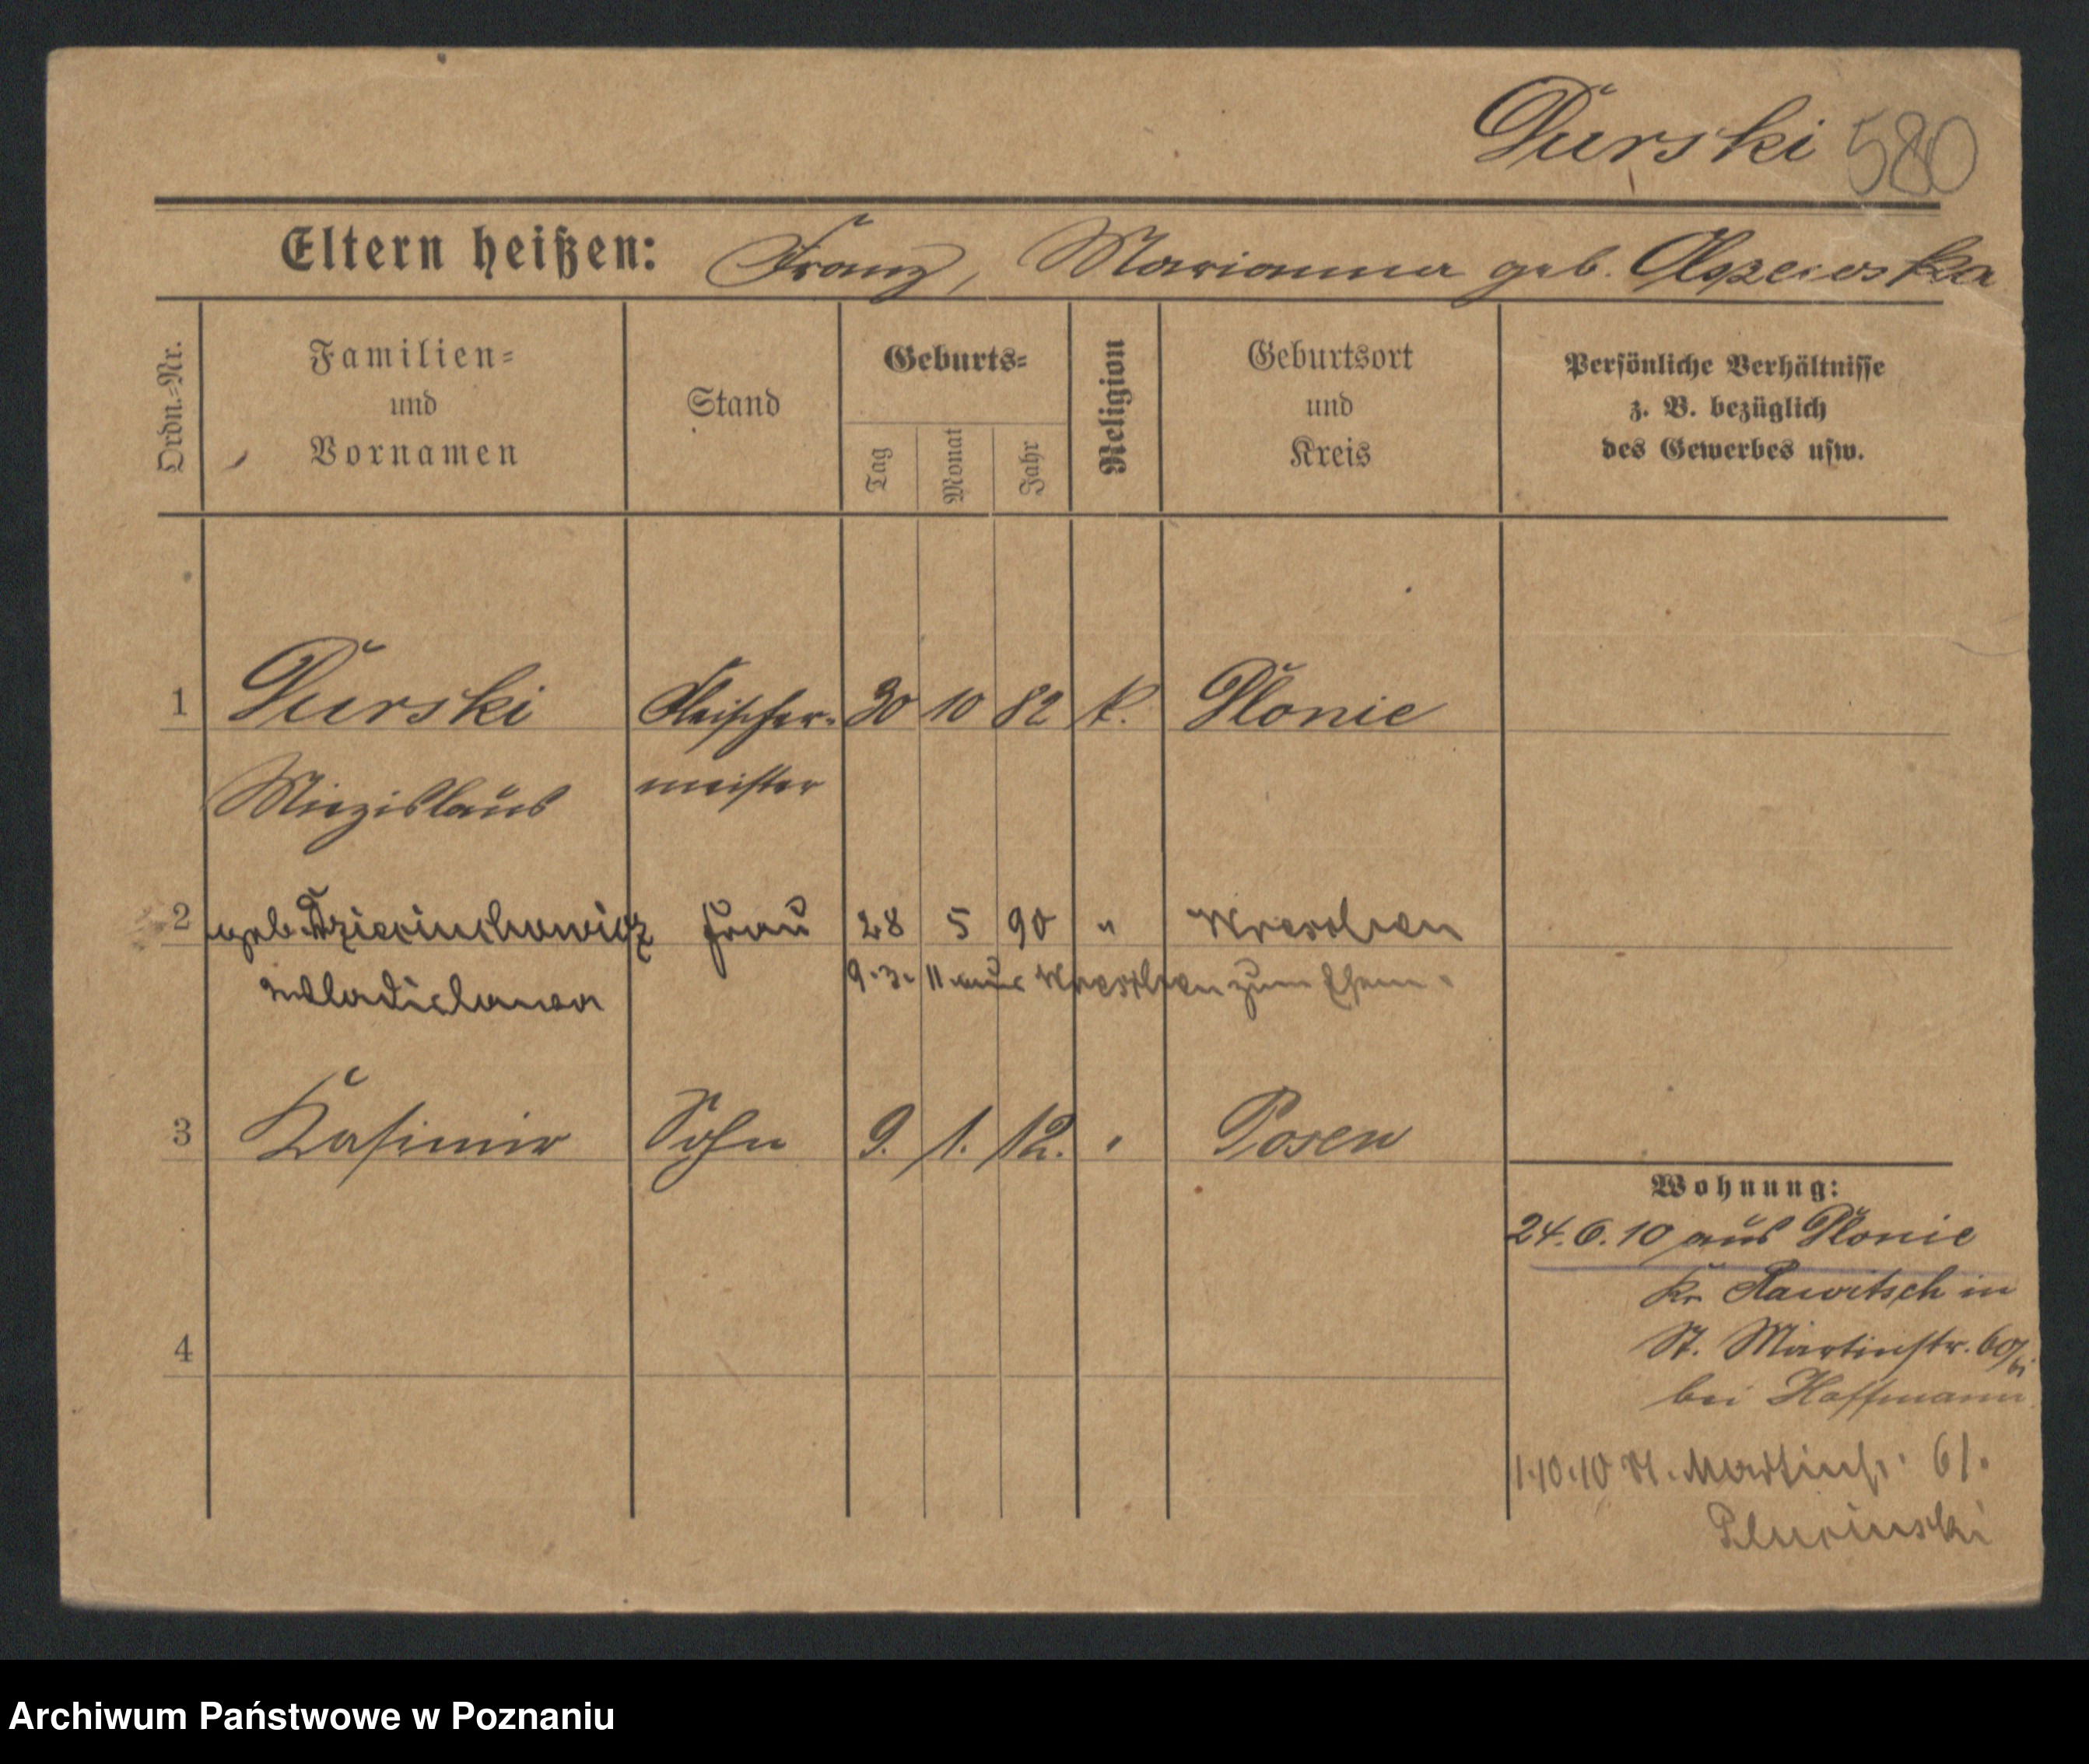 Durski 580
Eltern heißen: Franz, Marianna geb.
Ordn.=Nr.
Familien=
und
Vornamen
Stand
Geburts=
Tag
Monat
Jahr
Religion
Geburtsort
und
Kreis
Persönliche Verhältnisse
z. B. bezüglich
des Gewerbes usw.
1 Durski Fleischer- 30 10 82 k. Plonie
Miezislaus meister
2 geb. Frau 28 5 90 " Wreschen
Wladislawa 9.3.11 aus Wreschen zum Ehem.
3 Kasimir Sohn 9. 1. 12. " Posen
4
Wohnung:
24.6.10 aus Plonie
Kr. Rawitsch in
St. Martinstr. 60/
bei Hoffmann
1.10.10 St. Martinstr. 61.
Archiwum Państwowe w Poznaniu